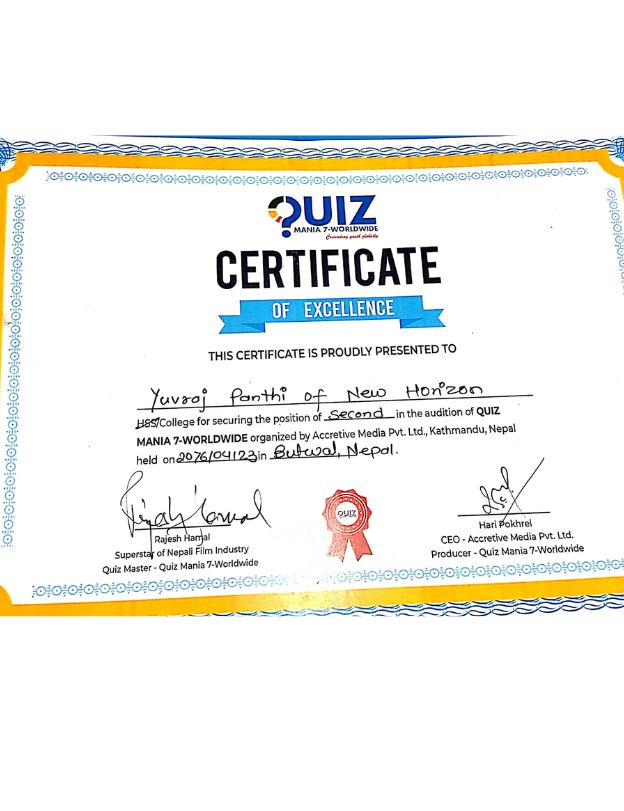 QUIZ
MANIA 7-WORLDWIDE
Connecting youth globally
CERTIFICATE
OF EXCELLENCE
THIS CERTIFICATE IS PROUDLY PRESENTED TO
Yuvraj Panthi of New Horizon
HSS/College for securing the position of Second in the audition of QUIZ
MANIA 7-WORLDWIDE organized by Accretive Media Pvt. Ltd., Kathmandu, Nepal
held on 2076/04/23 in Butwal, Nepal.
QUIZ
Rajesh Hamal
Superstar of Nepali Film Industry
Quiz Master - Quiz Mania 7-Worldwide
Hari Pokhrel
CEO - Accretive Media Pvt. Ltd.
Producer - Quiz Mania 7-Worldwide